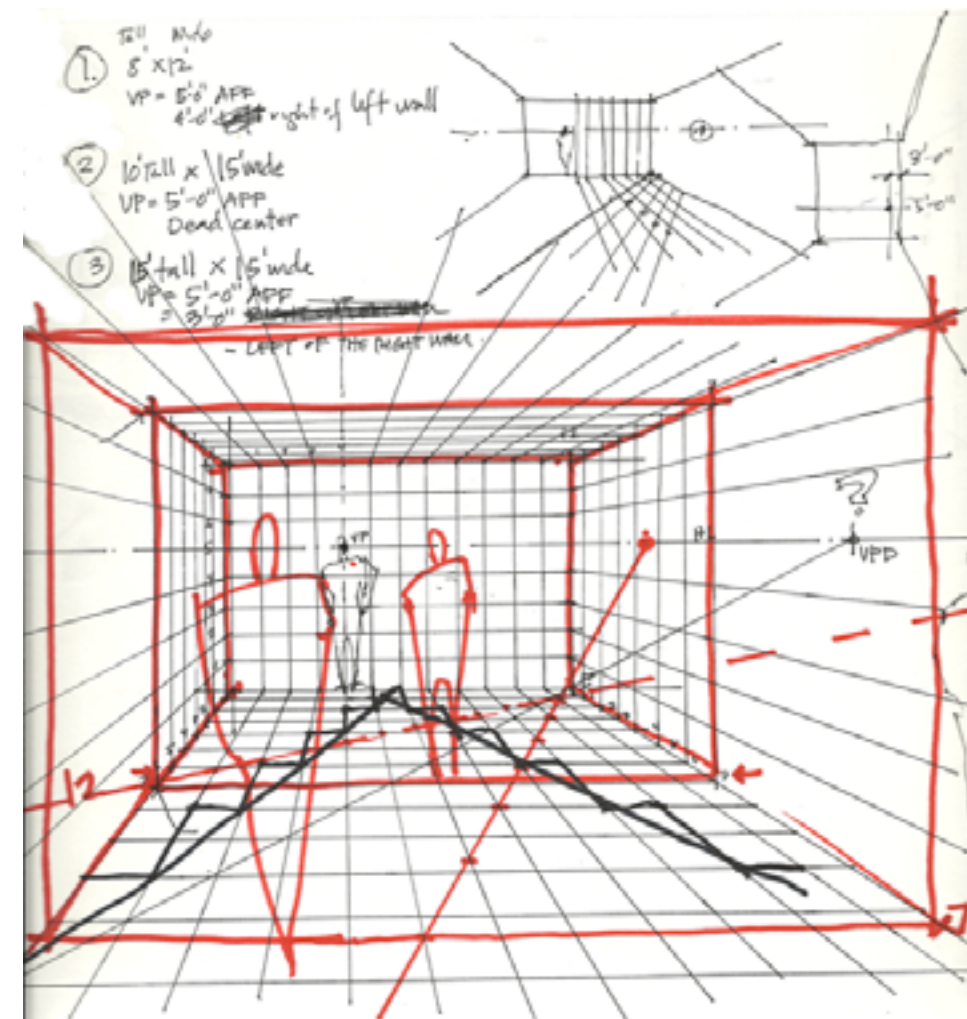 1. Tall
8' x 12'
VP = 5'-0" AFF
4'-0" right of left wall
2 10' Tall x 15' wide
VP = 5'-0" AFF
Dead center
3 15' tall x 15' wide
VP = 5'-0" AFF
= 3'-0"
- LEFT OF THE RIGHT WALL.
3'-0"
5'-0"
VP
?
VPD
12